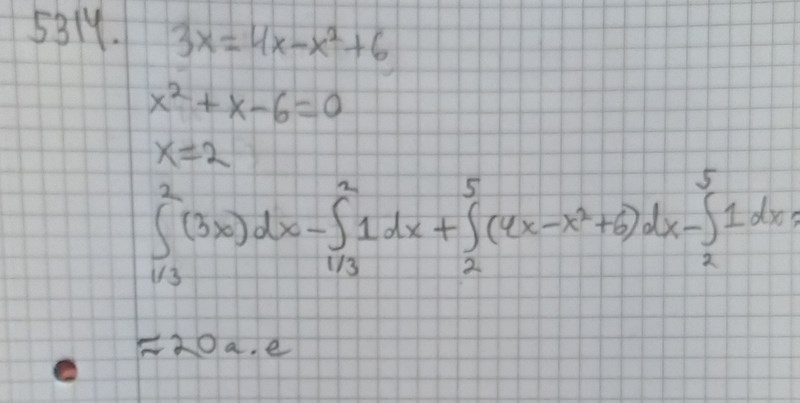 5314. 3x=4x-x²+6
x²+x-6=0
x=2
∫₁/₃² (3x)dx - ∫₁/₃² 1dx + ∫₂⁵ (4x-x²+6)dx - ∫₂⁵ 1dx=
≈20a.e